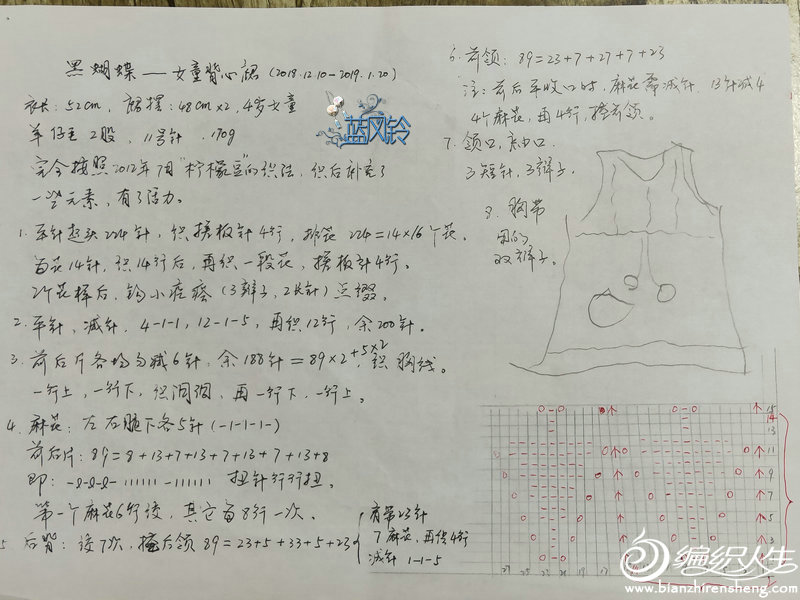 黑蝴蝶——女童背心裙（2018.12.10-2019.1.20）
衣长：52cm，裙摆：48cm×2，4岁女童
羊仔毛2股，11号针，170g
完全按照2012年7月“柠檬豆”的织法，织后补充了
一些元素，有了活力。
1. 平针起头224针，织搓板针4行，排花 224=14×16个花。
每花14针，织14行后，再织一段花，搓板针4行。
2个花样后，钩小疙瘩（3辫子，2长针）点缀。
2. 平针，减针，4-1-1，12-1-5，再织12行，余200针。
3. 前后片各均匀减6针，余188针=89×2+5×2，织胸线。
一行上，一行下，织洞洞，再一行下，一行上。
4. 麻花：左右腋下各5针（-1-1-1-）
前后片：89=8+13+7+13+7+13+7+13+8
即： 扭针行行扭。
第一个麻花6行绞，其它每8行一次。
5 后背：绞7次，后领 89=23+5+33+5+23
肩带23针
7麻花，再织4行
减针 1-1-5
6. 前领：89=23+7+27+7+23
注：前后平收口时，麻花需减针，13针减4
4个麻花，再4行，前领。
7. 领口，袖口
3短针，3辫子。
8. 胸带
用的
双辫子。
蓝风铃
15
14
13
11
9
7
5
3
编织人生
www.bianzhirensheng.com